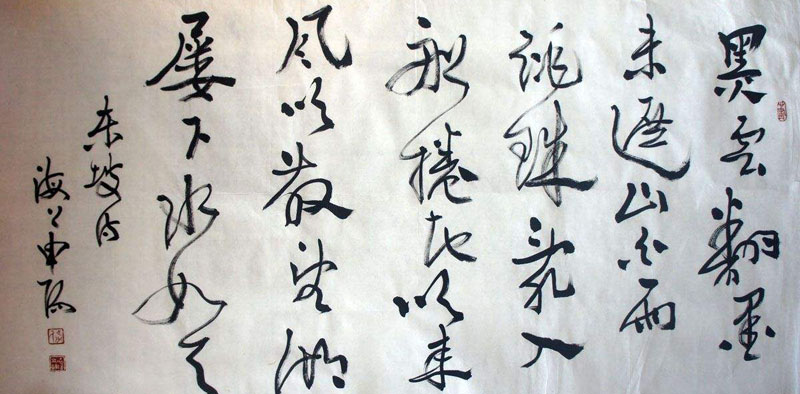 黑云翻墨
未遮山白雨
跳珠乱入
船捲地吹来
风吹散望湖
屡下水如天
东坡诗